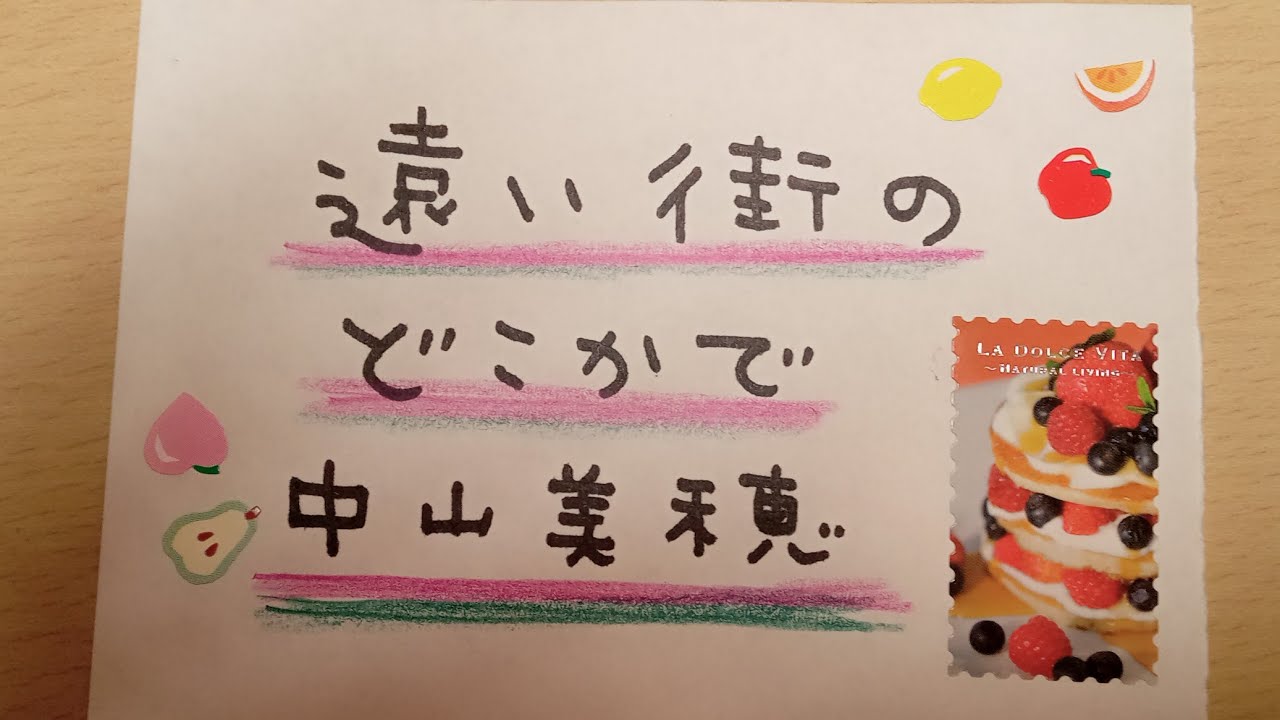 遠い街の
どこかで
中山美穂
LA DOLCE VITA
～NATURAL LIVING～